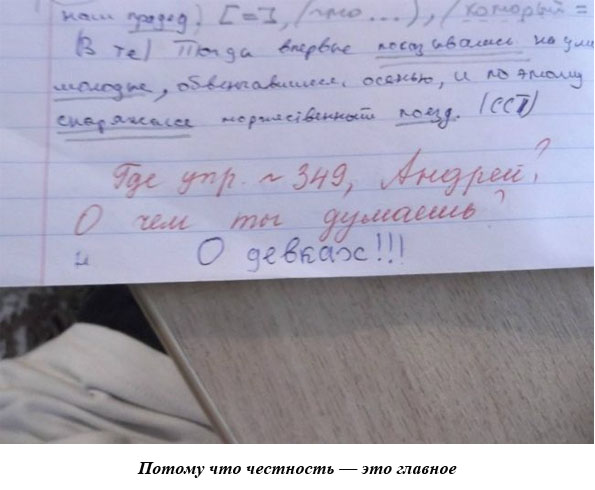 наш прадед) [=], (что...), (который =
(В те) Тогда впервые показывались на ули
молодые, обвенчавшиеся осенью, и поэтому
снаряжался торжественный поезд. (ССП)
Где упр. ~ 349, Андрей?
О чем ты думаешь?
О девках!!!
Потому что честность — это главное